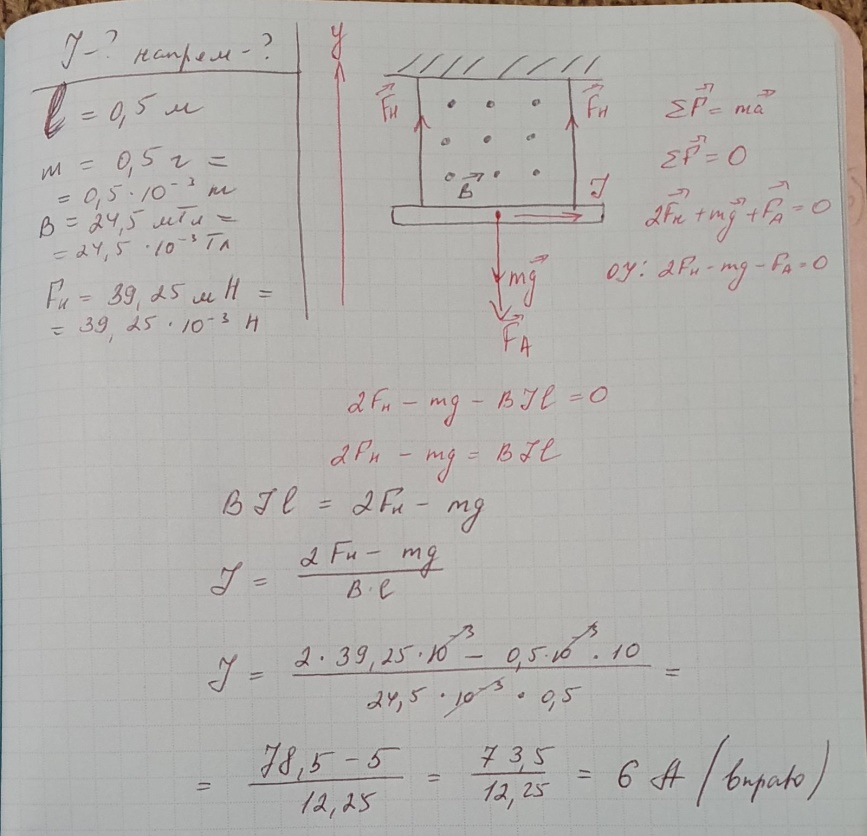 J-? напрям-?
l = 0,5 м
m = 0,5 г =
= 0,5·10⁻³ т
B = 24,5 мТл =
= 24,5·10⁻³ Тл
Fн = 39,25 мН =
= 39,25·10⁻³ Н
y
F⃗н
F⃗н
B⃗
J
mg⃗
F⃗A
ΣF⃗ = ma⃗
ΣF⃗ = 0
2F⃗н + mg⃗ + F⃗A = 0
OY: 2Fн - mg - FA = 0
2Fн - mg - BJl = 0
2Fн - mg = BJl
BJl = 2Fн - mg
J = (2Fн - mg)/(B·l)
J = (2·39,25·10⁻³ - 0,5·10⁻³·10)/(24,5·10⁻³·0,5) =
= (78,5 - 5)/12,25 = 73,5/12,25 = 6 A (вправо)